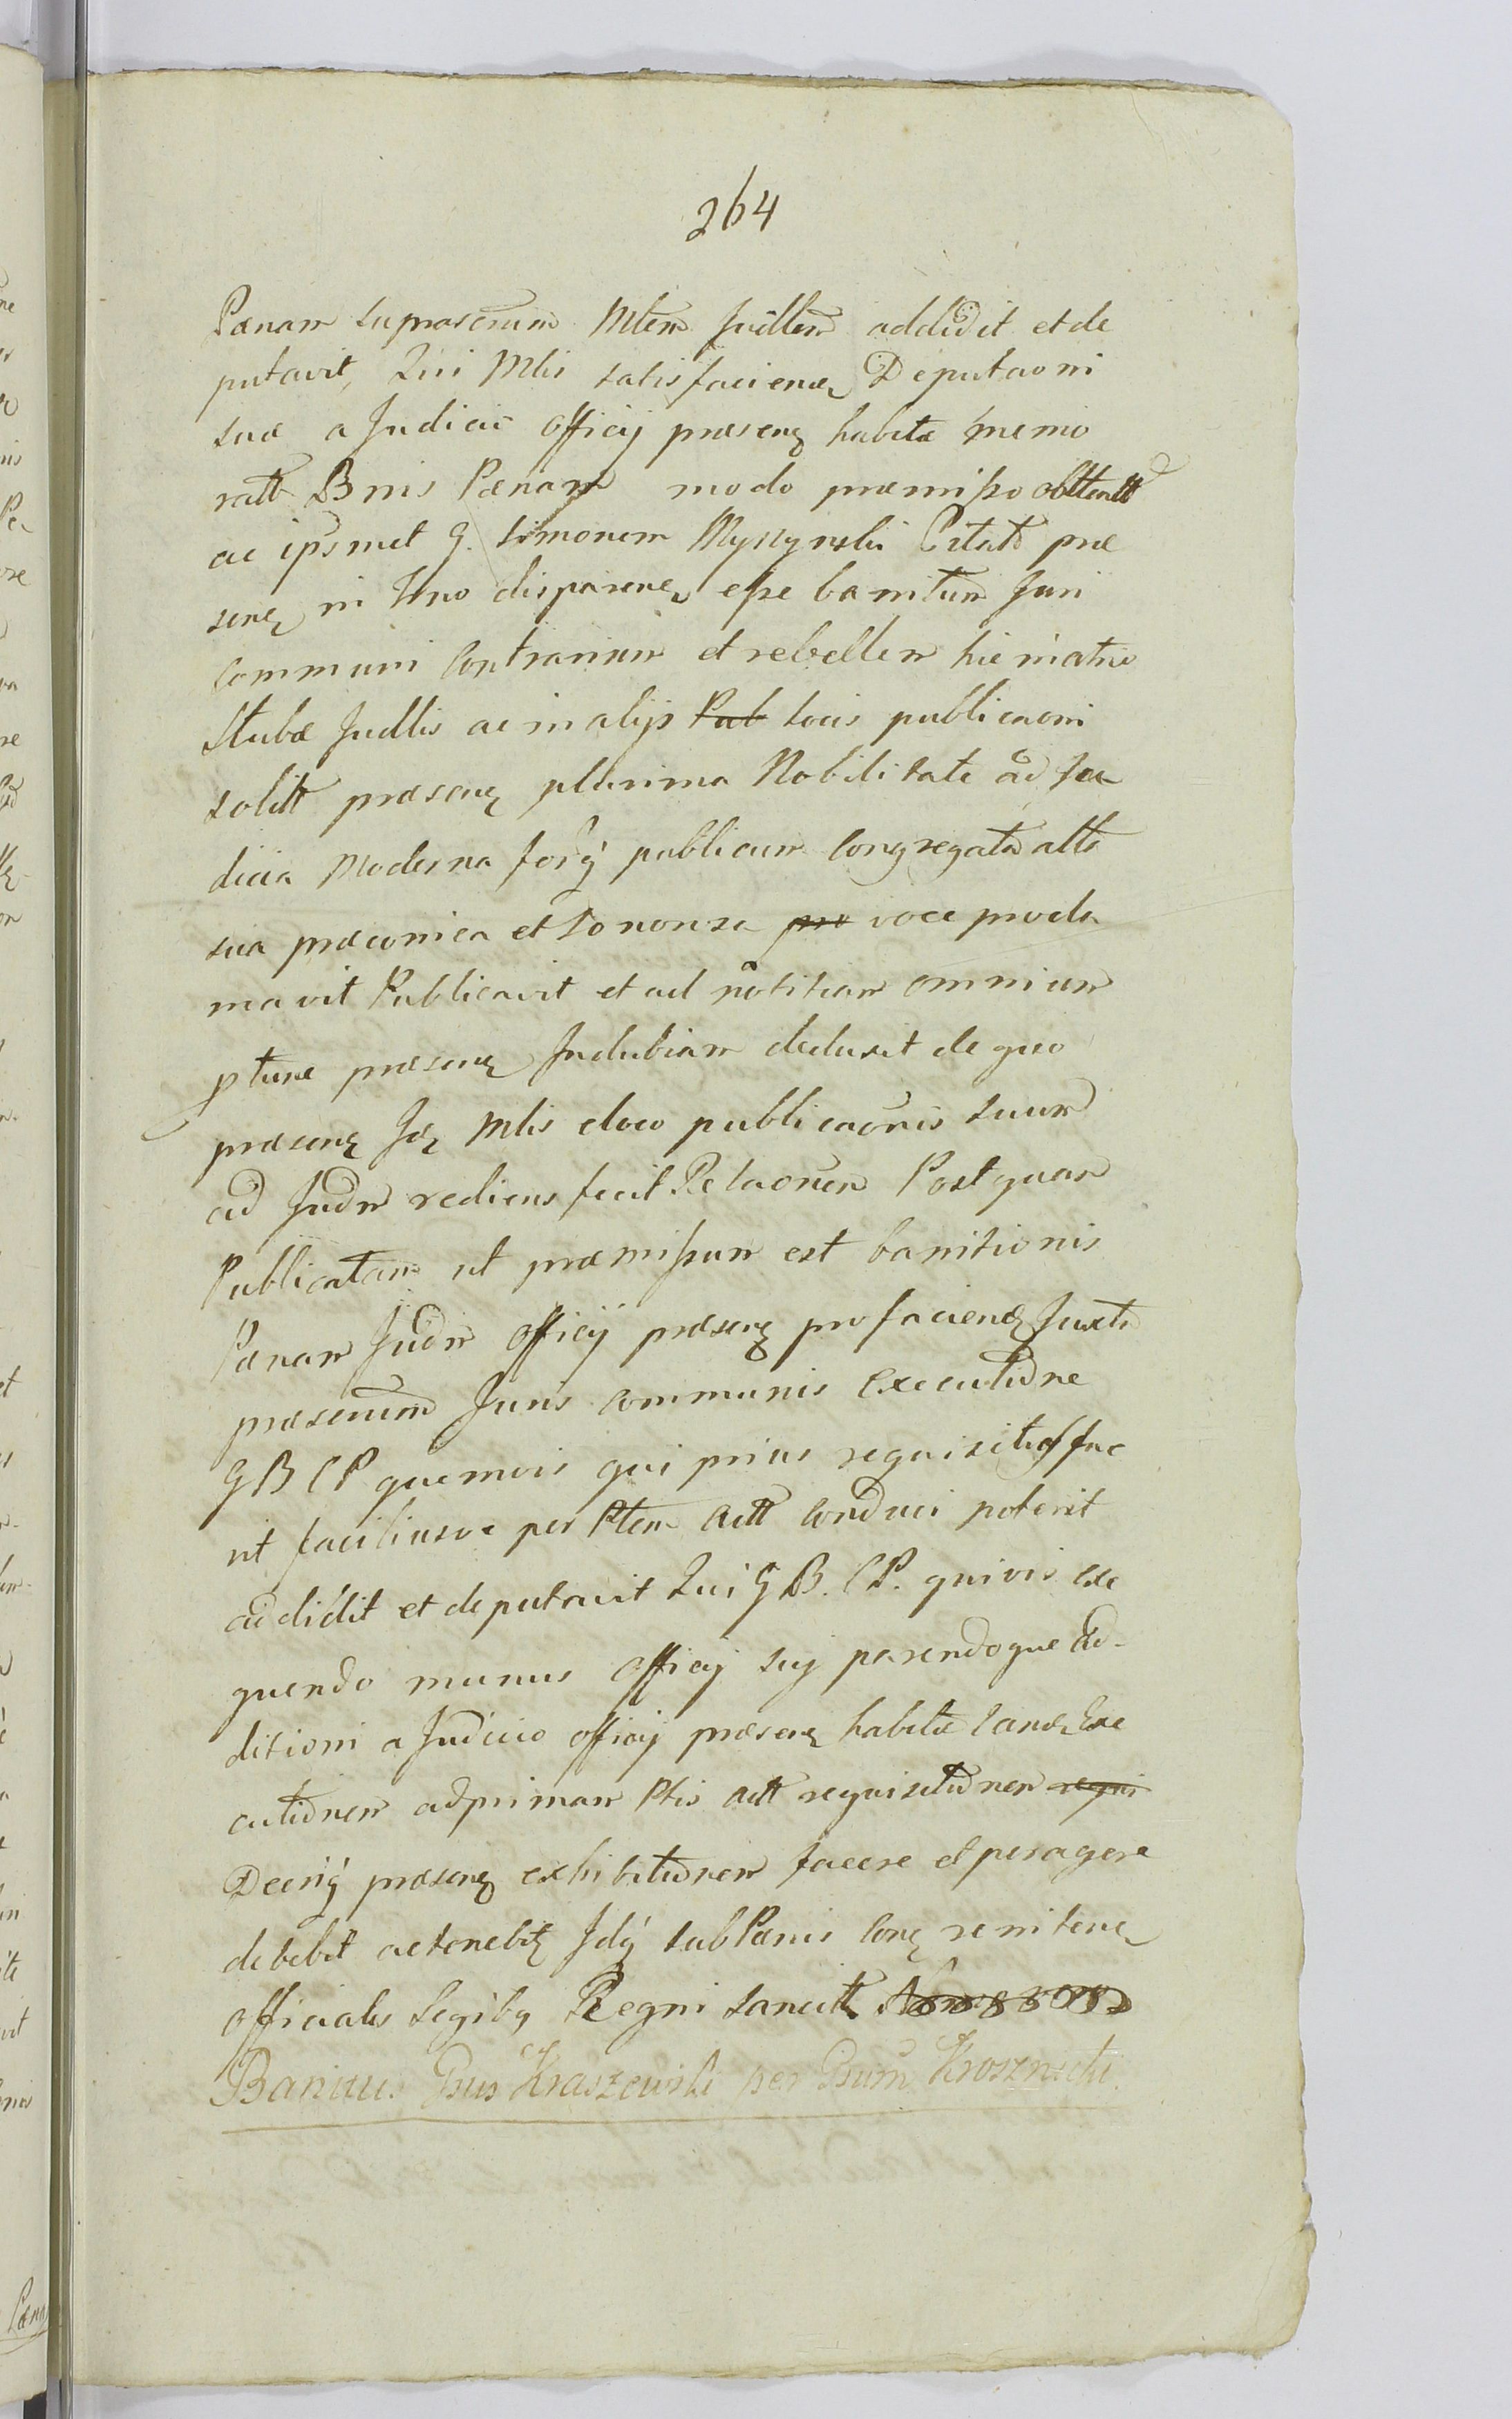 264
Pœnam suprascrum Mtem Judlem addidit et de
putavit, Qui Mlis satisfacienę Deputaoni
suæ a Judicio Officij præsenę habitæ memo
ratt Bnis Pœnam modo præmisso obttentt
ac ipsmet G. Simonem Citatt præ
senę in Tnno disparenę esse banitum Juri
communi contrarium et rebellem hic in atrio
Stubæ Judlis ac in alijs Pub locis publicaoni
solitt præsenę plurima Nobilitate ad Ju
dicia Moderna forij publicum congregata alta
sua præconica et sonora pro voce procla
mavit Publicavit et ad notitiam omnium
ptunc præsenę Indubiam deduxit de quo
præsenę Idę Mlis eloco publicaonis suum
ad Judm rediens fecit Relaonem Postquam
Publicatam ut præmissum est banitionis
Pœnam Judm Officij præsenę pro facienę Juxta
præscrum Juris communis Executione
G B C P quemvis qui prius requisitus fue
rit faciliusve per Ptem Actt conduci poterit
addidit et deputavit Qui G B. C P. quivis exe
quendo munus Officij sui parendoque Ad-
ditioni a Judicio officij præsenę habitæ tanę Exe
cutionem ad primam Ptis Actt requisitionem requi
Decrij præsenę exhibitionem facere et peragere
debebit ac tenebitę Idq sub Pœnis conę renitenę
Officiales Legibę Regni sancitt
Banitus Gsus Kraszewski per Gsum Krosznicki.
Pœna